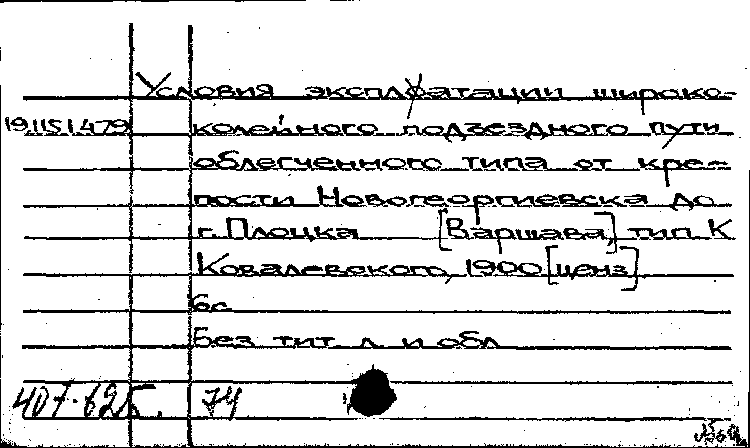 Условия эксплоатации широко-
19.115.1.479 колейного подъездного пути
облегченного типа от кре-
пости Новогеоргиевска до
г. Плоцка [Варшава], тип. К
Ковалевского, 1900 [ценз]
6с
Без тит. л. и обл
407-62Б. 74